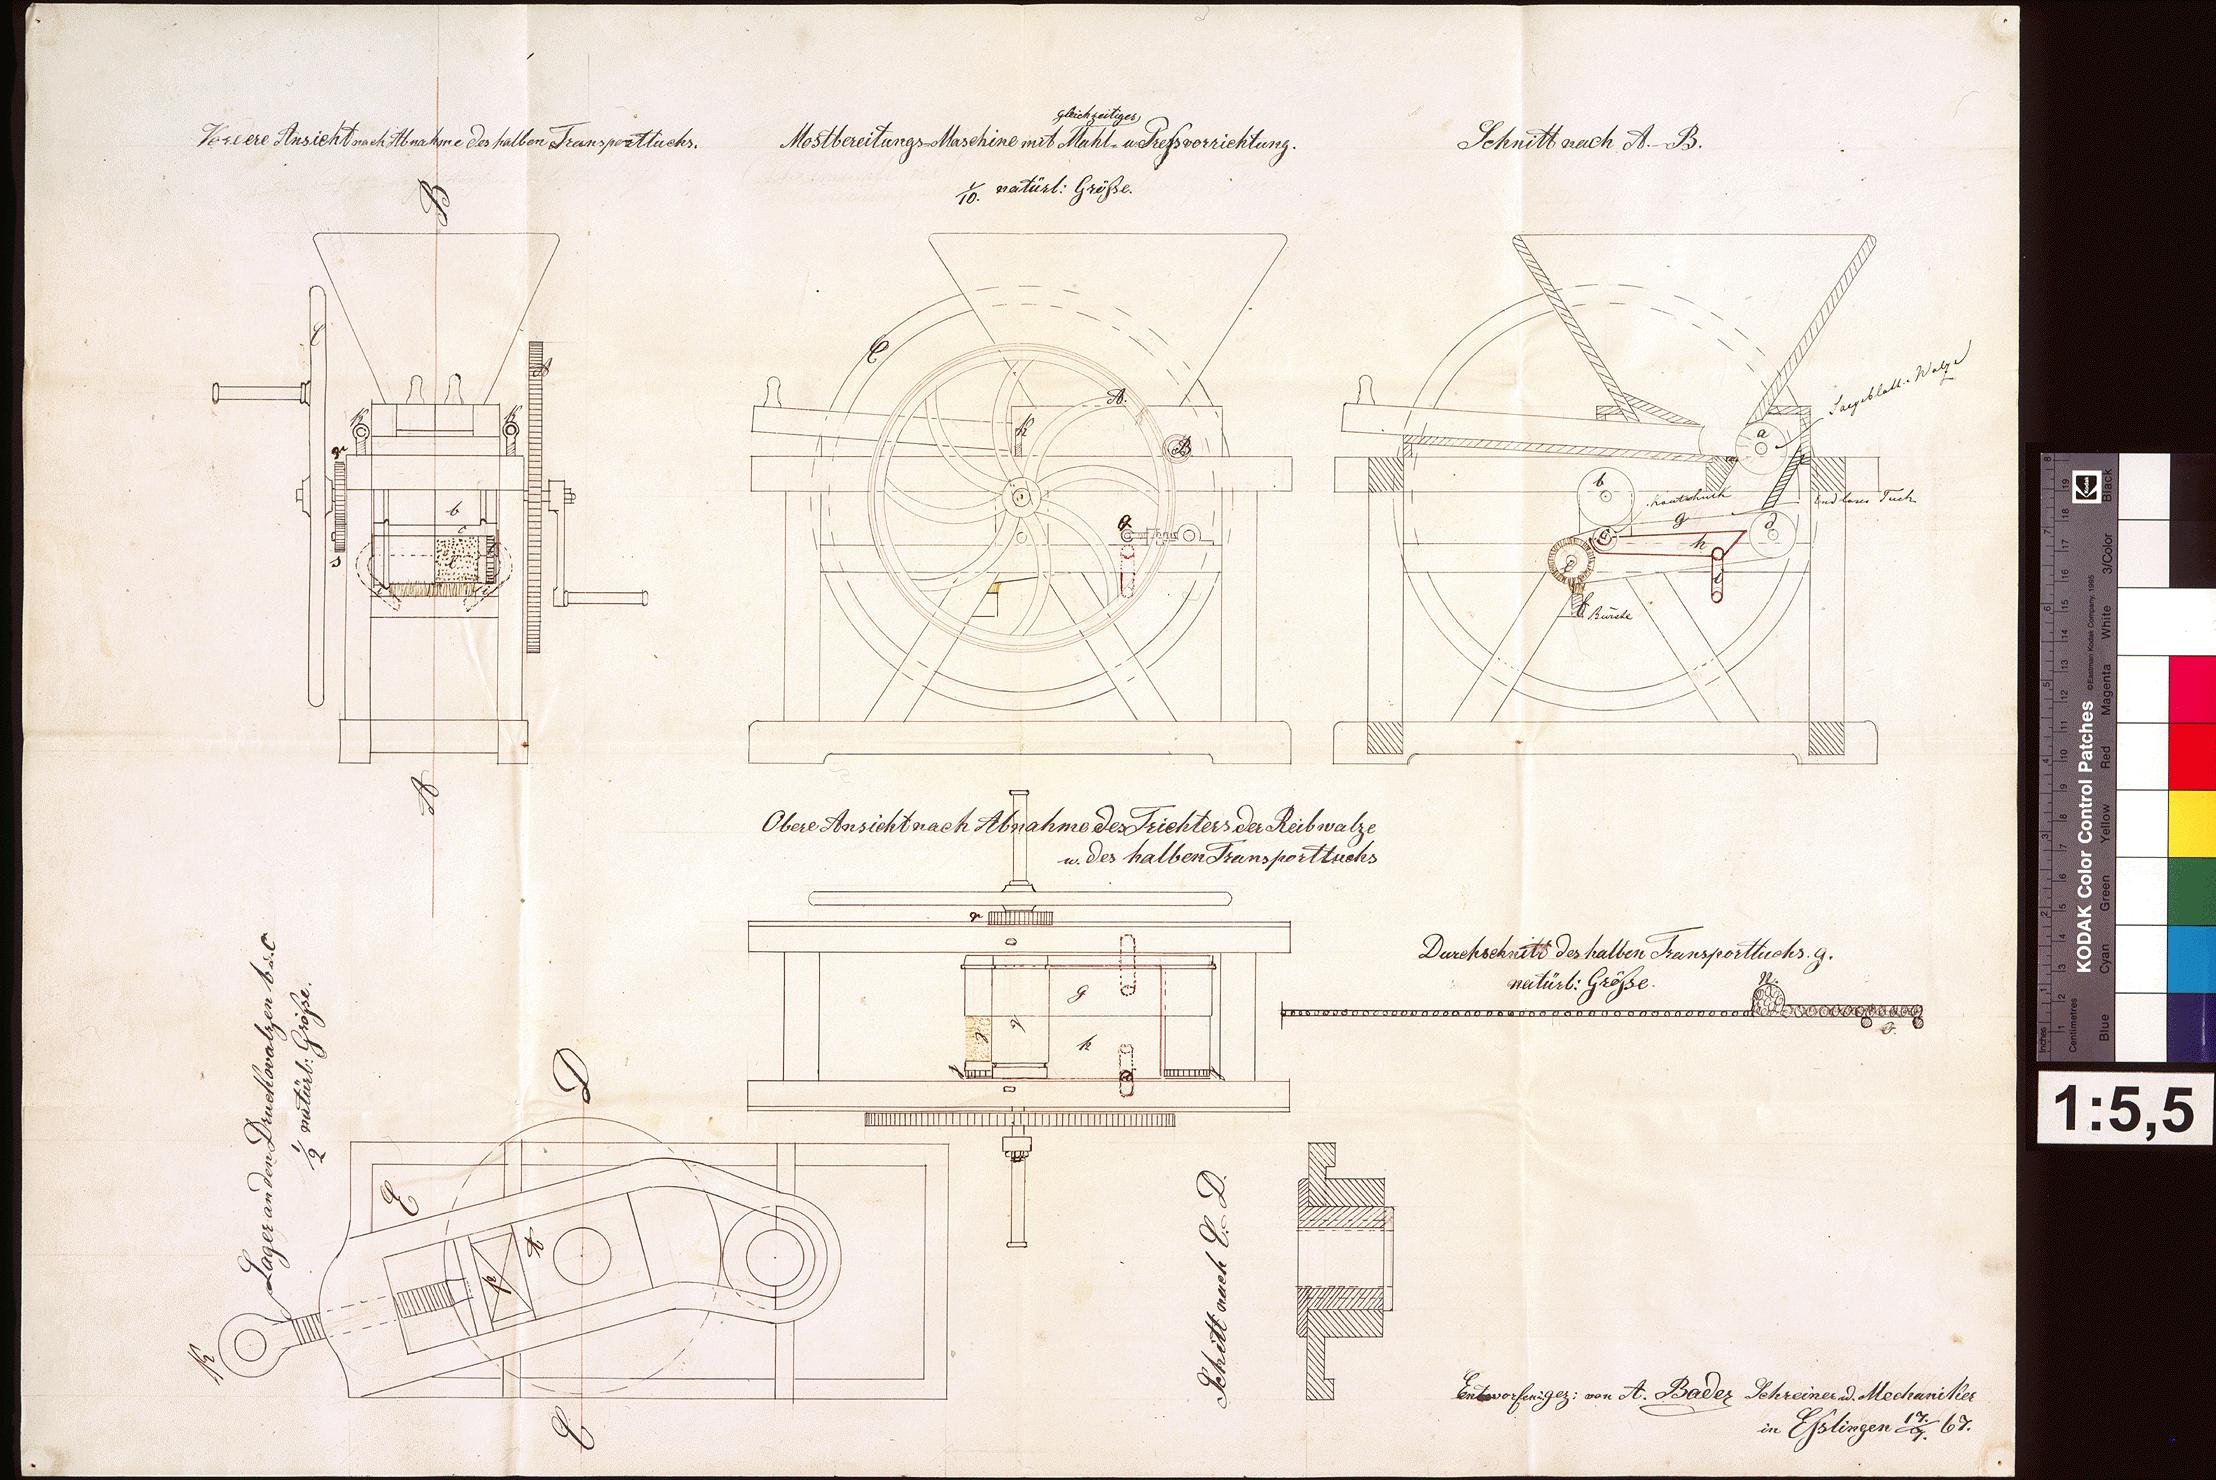 Vordere Ansicht nach Abnahme des halben Transporttuchs.
gleichzeitiger
Mostbereitungs-Maschine mit Mahl- u. Preßvorrichtung.
1/10. natürl: Größe.
Schnitt nach A.-B.
B
A
C
A
K
K
r
s
b
c
e
i
i
C
A.
B
K
Saegeblatt-Walze
a
b
Kautschuk
Endloses Tuch
g
d
c
h
e
i
f
Bürste
Obere Ansicht nach Abnahme des Trichters der Reibwalze
u. des halben Transporttuchs
r
g
h
f
Durchschnitt des halben Transporttuchs. g.
natürl: Größe.
n.
o.
Lager an den Druckwalzen b u. c
1/2 natürl: Größe.
D
E
K
p
C
Schnitt nach C.-D.
Entworfen u. gez: von A. Bader Schreiner u. Mechaniker
in Eßlingen 17/7. 67.
KODAK Color Control Patches
©Eastman Kodak Company, 1995
Kodak
Inches
Centimetres
Blue
Cyan
Green
Yellow
Red
Magenta
White
3/Color
Black
1:5,5